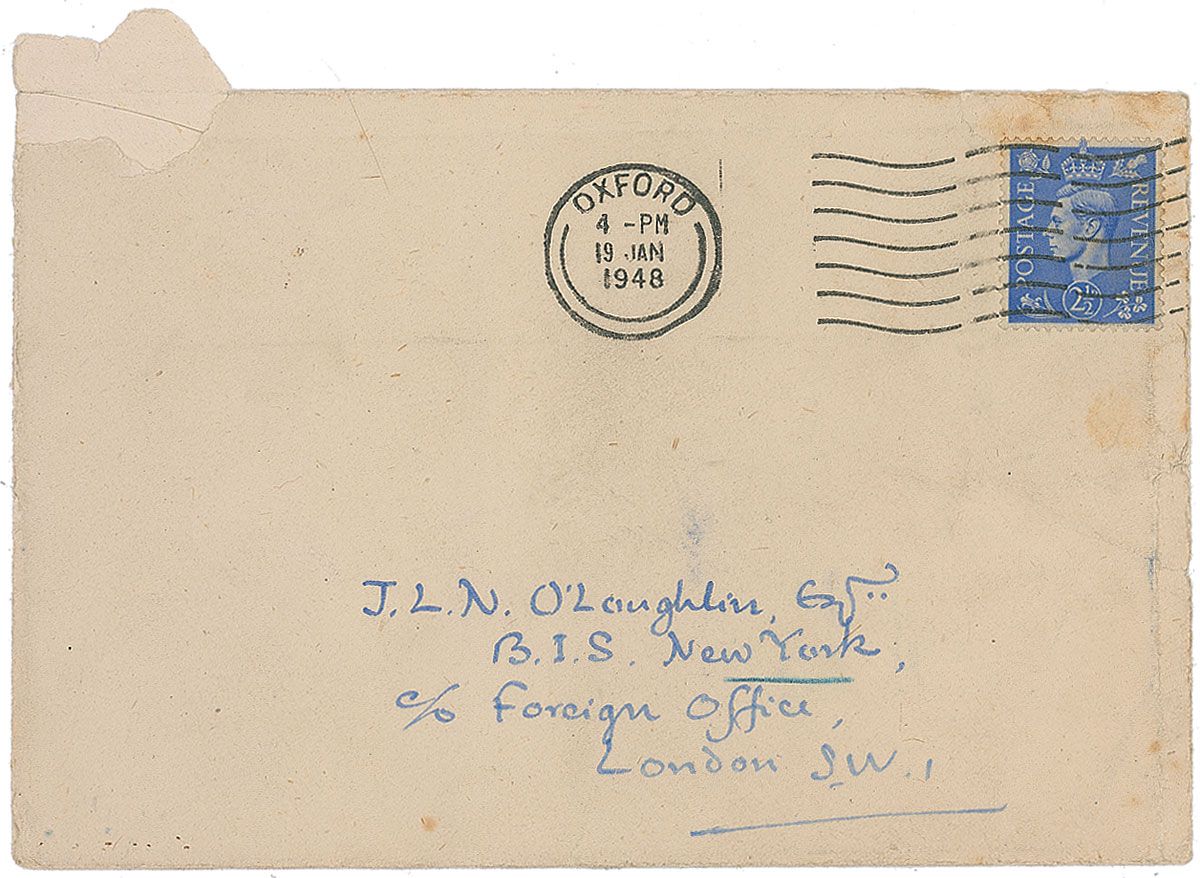 OXFORD
4 - PM
19 JAN
1948
POSTAGE REVENUE
2½
J.L.N. O'Loughlin, Esq..
B.I.S. New York,
c/o Foreign Office,
London S.W.1